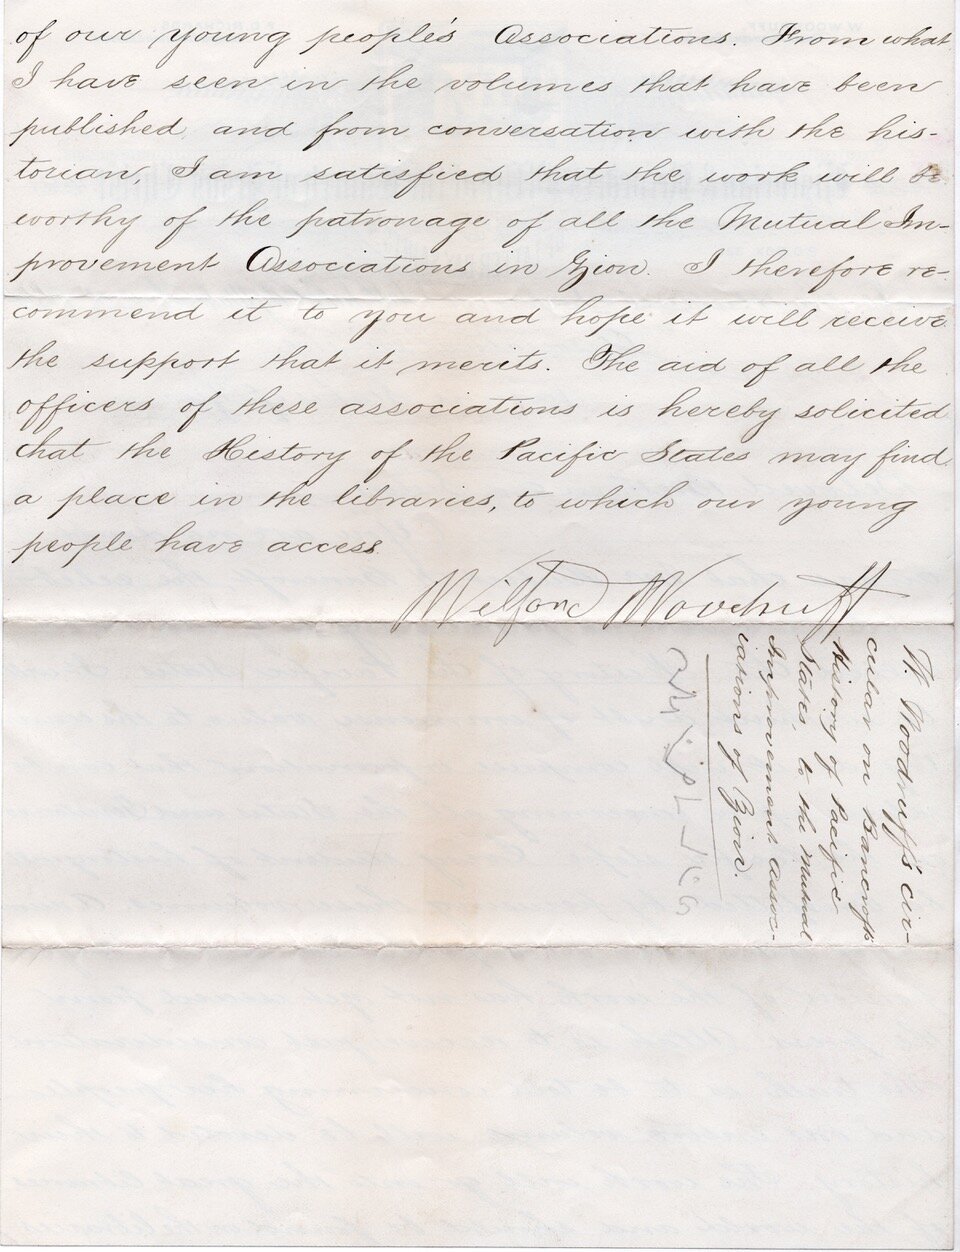 of our young people's Associations. From what
I have seen in the volumes that have been
published, and from conversation with the his-
torian, I am satisfied that the work will be
worthy of the patronage of all the Mutual Im-
provement Associations in Zion. I therefore re-
commend it to you and hope it will receive
the support that it merits. The aid of all the
officers of these associations is hereby solicited
that the History of the Pacific States may find
a place in the libraries, to which our young
people have access.
Wilford Woodruff
W. Woodruff's cir-
cular on Bancroft's
History of Pacific
States, to the Mutual
Improvement Assoc-
iations of Zion.